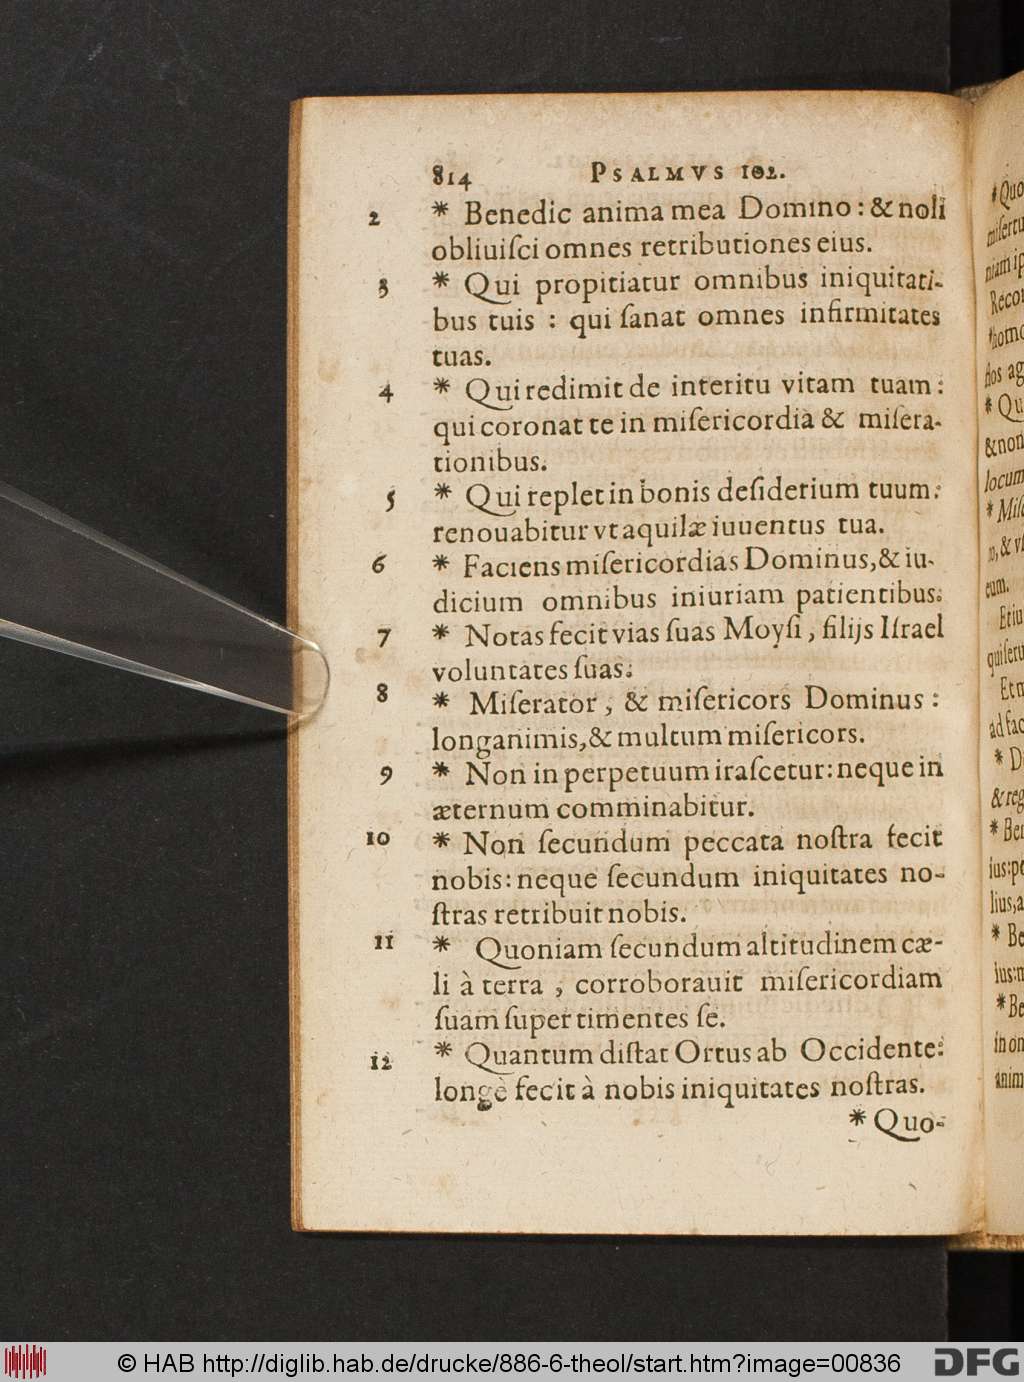 814 PSALMVS 102.
2 * Benedic anima mea Domino: & noli
obliuiſci omnes retributiones eius.
3 * Qui propitiatur omnibus iniquitati-
bus tuis : qui ſanat omnes infirmitates
tuas.
4 * Qui redimit de interitu vitam tuam:
qui coronat te in miſericordia & miſera-
tionibus.
5 * Qui replet in bonis deſiderium tuum:
renouabitur vt aquilæ iuuentus tua.
6 * Faciens miſericordias Dominus, & iu-
dicium omnibus iniuriam patientibus.
7 * Notas fecit vias ſuas Moyſi, filijs Iſrael
voluntates ſuas.
8 * Miſerator, & miſericors Dominus:
longanimis, & multum miſericors.
9 * Non in perpetuum iraſcetur: neque in
æternum comminabitur.
10 * Non ſecundum peccata noſtra fecit
nobis: neque ſecundum iniquitates no-
ſtras retribuit nobis.
11 * Quoniam ſecundum altitudinem cæ-
li à terra, corroborauit miſericordiam
ſuam ſuper timentes ſe.
12 * Quantum diſtat Ortus ab Occidente:
longè fecit à nobis iniquitates noſtras.
* Quo-
© HAB http://diglib.hab.de/drucke/886-6-theol/start.htm?image=00836
DFG